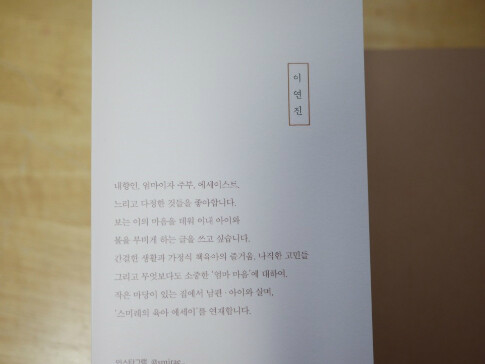 이연진
내향인, 엄마이자 주부, 에세이스트.
느리고 다정한 것들을 좋아합니다.
보는 이의 마음을 데워 이내 아이와
볼을 부비게 하는 글을 쓰고 싶습니다.
간결한 생활과 가정식 책육아의 즐거움, 나직한 고민들
그리고 무엇보다도 소중한 '엄마 마음'에 대하여.
작은 마당이 있는 집에서 남편·아이와 살며,
'스미레의 육아 에세이'를 연재합니다.
인스타그램